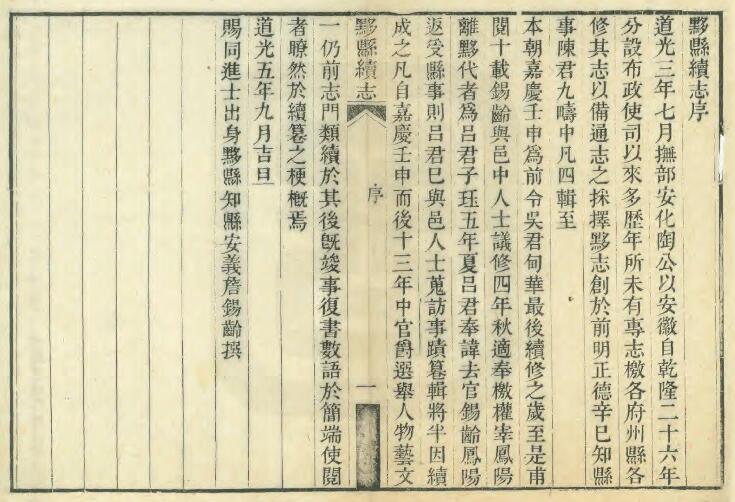 黟縣續志序
道光三年七月撫部安化陶公以安徽自乾隆二十六年
分設布政使司以來多歷年所未有專志檄各府州縣各
修其志以備通志之採擇黟志創於前明正德辛巳知縣
事陳君九疇中凡四輯至
本朝嘉慶壬申爲前令吳君甸華最後續修之歲至是甫
閱十載錫齡與邑中人士議修四年秋適奉檄權宰鳳陽
離黟代者爲呂君子珏五年夏呂君奉諱去官錫齡鳳陽
返受縣事則呂君巳與邑人士蒐訪事蹟篹輯將半因續
成之凡自嘉慶壬申而後十三年中官爵選舉人物藝文
黟縣續志
序
一
一仍前志門類續於其後旣竣事復書數語於簡端使閱
者瞭然於續篹之梗概焉
道光五年九月吉旦
賜同進士出身黟縣知縣安義詹錫齡撰